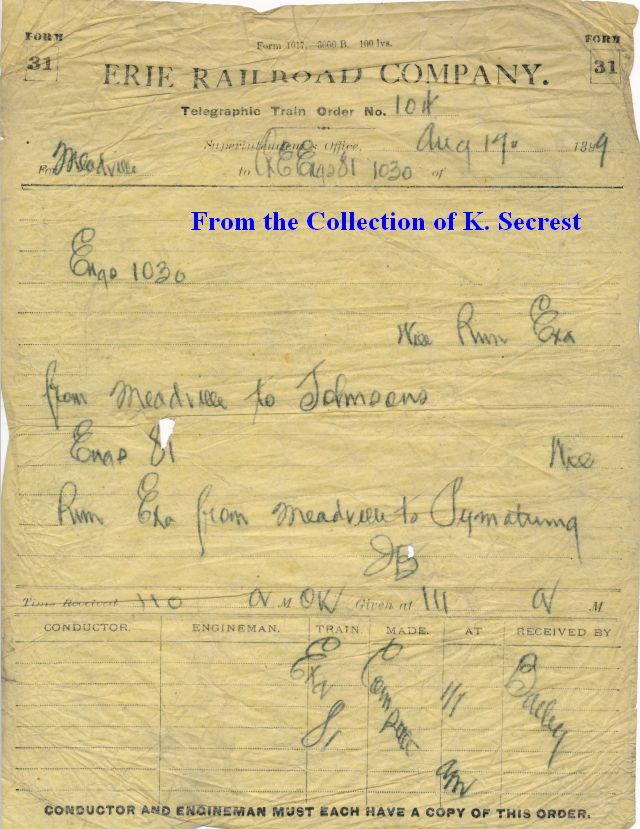 FORM 31
Form 1017.—3000 B. 100 lvs.
FORM 31
ERIE RAILROAD COMPANY.
Telegraphic Train Order No. 104
Superintendent's Office, Aug 19" 1899
For Meadville to C&E Engs 81 1030 of
From the Collection of K. Secrest
Eng 1030
Will Run Exa
from Meadville to Johnsons
Eng 81 Will
Run Exa from Meadville to Pymatuning
Time Received 110 A.M OK Given at 111 A.M
CONDUCTOR. ENGINEMAN. TRAIN MADE. AT RECEIVED BY
Exa 81 Complete 111 am Bailey
CONDUCTOR AND ENGINEMAN MUST EACH HAVE A COPY OF THIS ORDER.